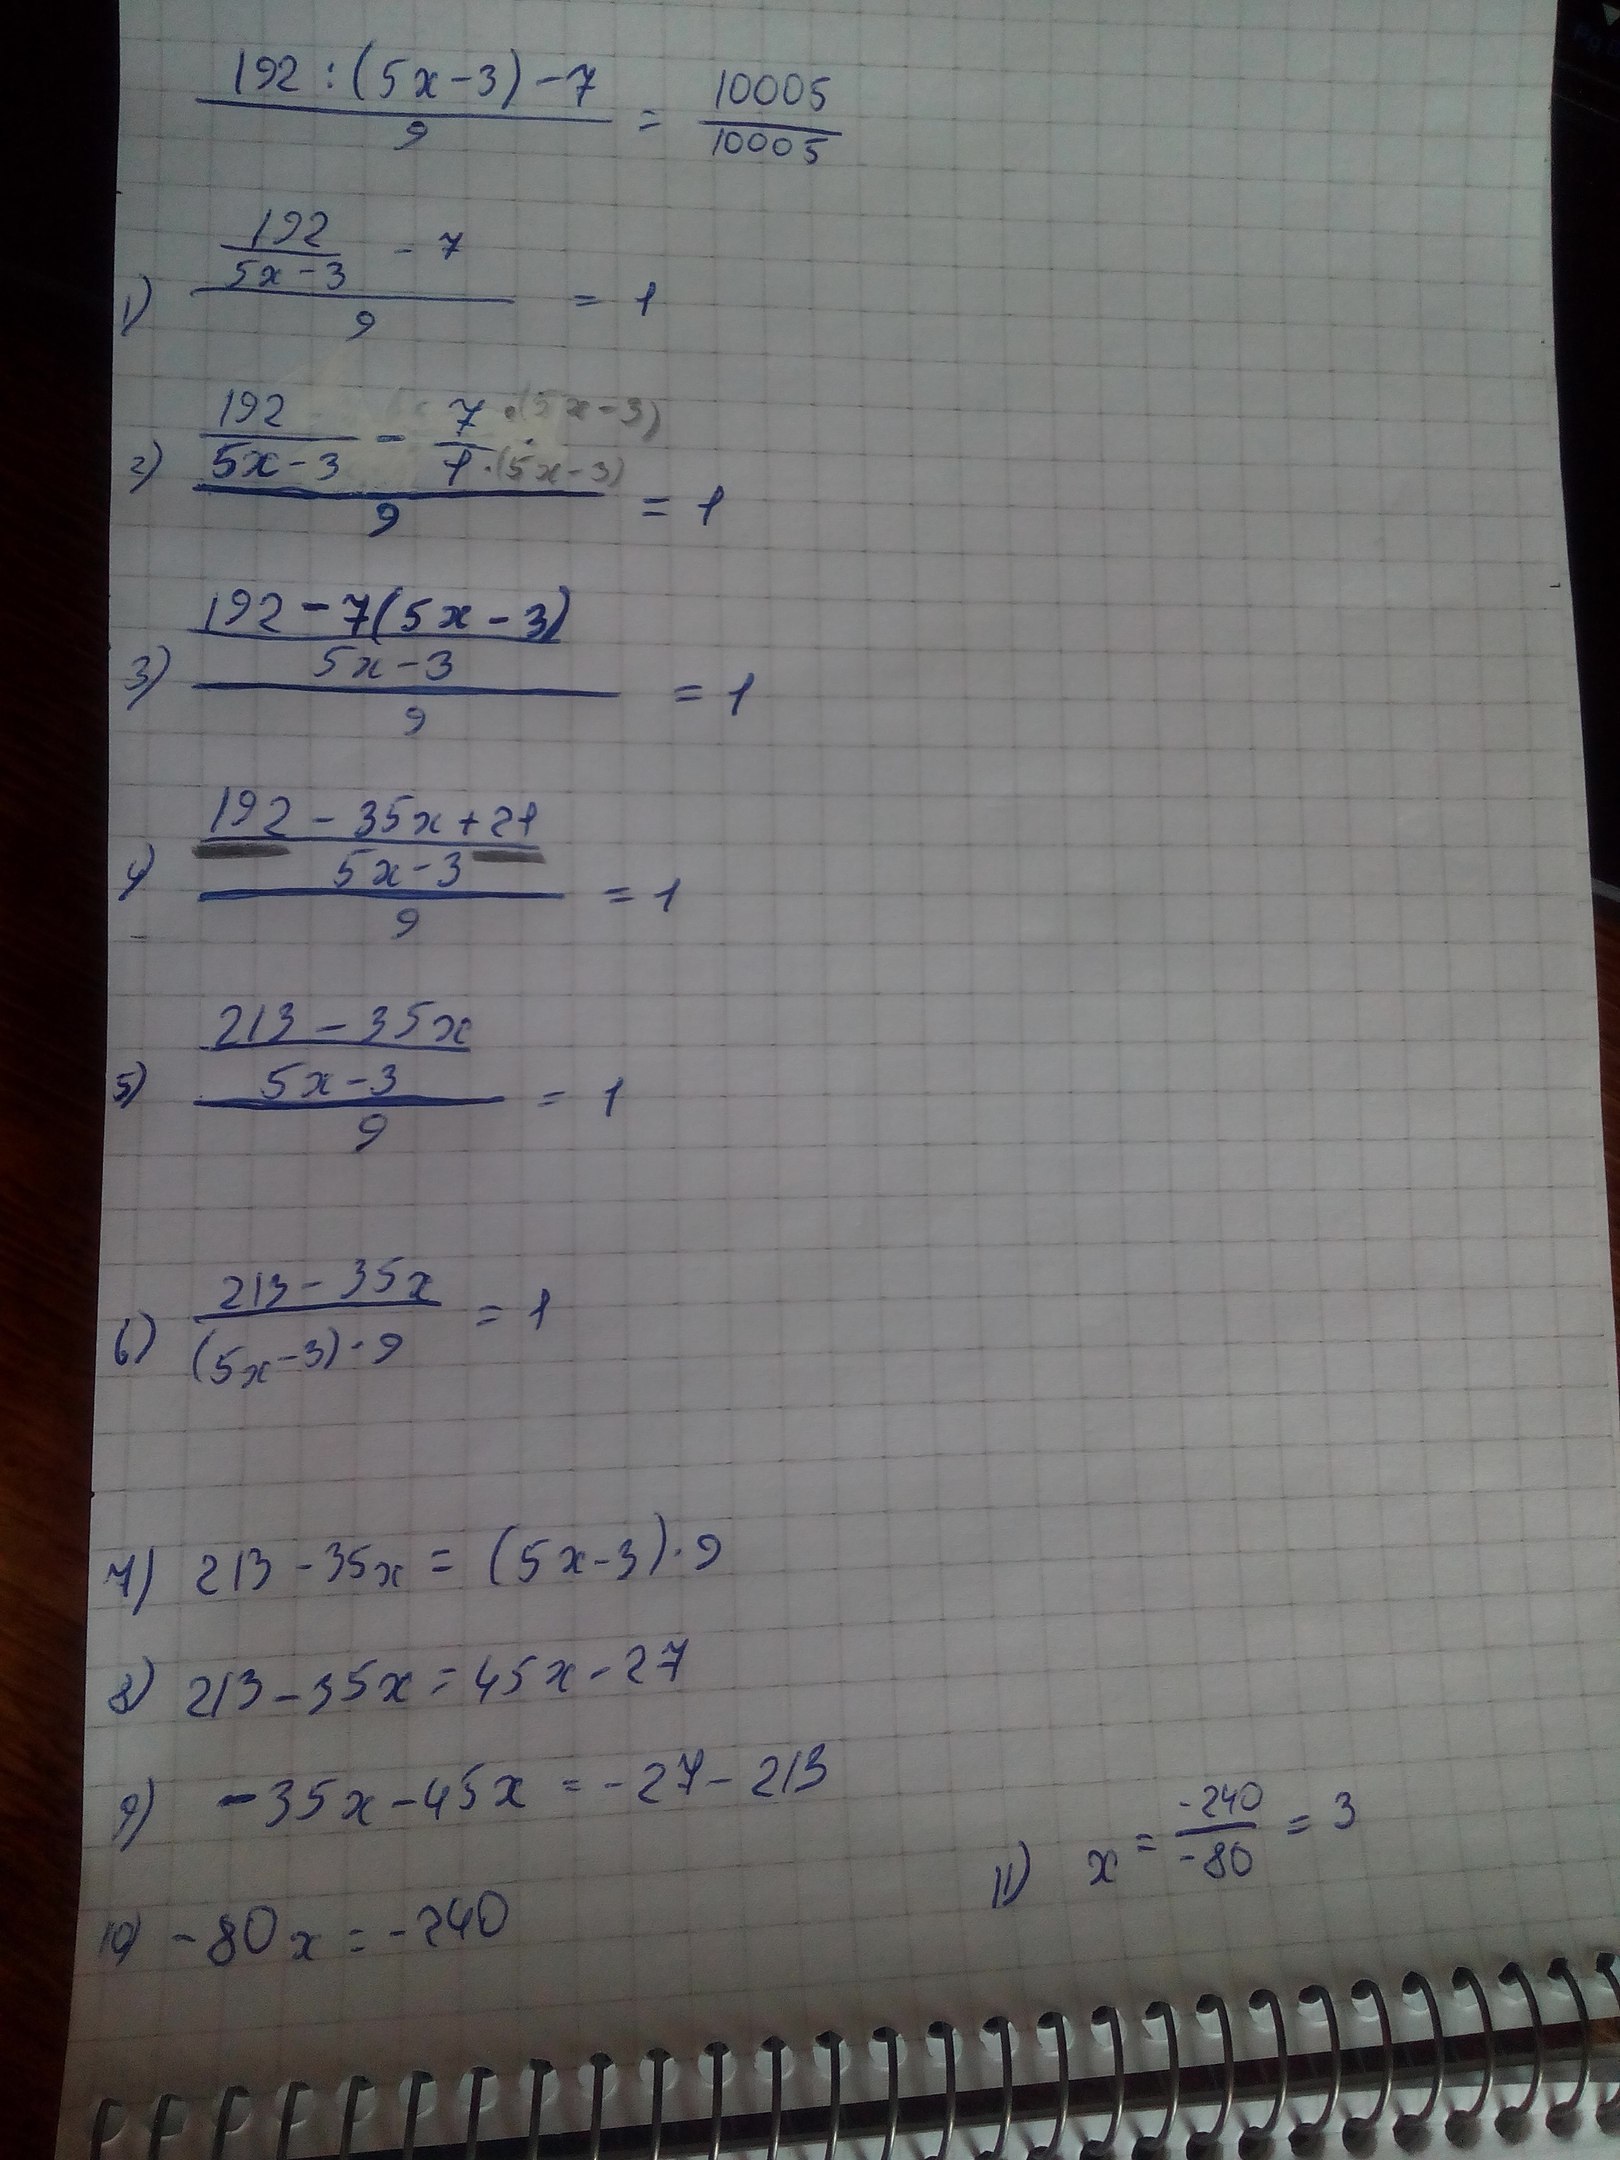 (192 : (5x - 3) - 7) / 9 = 10005 / 10005
1) (192 / (5x - 3) - 7) / 9 = 1
2) (192 / (5x - 3) - 7·(5x - 3) / 1·(5x - 3)) / 9 = 1
3) ((192 - 7(5x - 3)) / (5x - 3)) / 9 = 1
4) ((192 - 35x + 21) / (5x - 3)) / 9 = 1
5) ((213 - 35x) / (5x - 3)) / 9 = 1
6) (213 - 35x) / ((5x - 3)·9) = 1
7) 213 - 35x = (5x - 3)·9
8) 213 - 35x = 45x - 27
9) -35x - 45x = -27 - 213
10) -80x = -240
11) x = -240 / -80 = 3